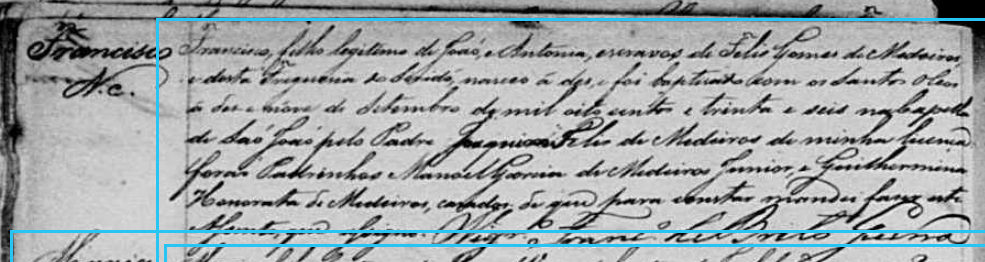 Francisco
N.c.
Francisco, filho legitimo de Joaõ, e Antonia, escravos, de Felis Gomes de Medeiros,
e desta Freguesia do Seridó, nasceo á dez, e foi baptizado com os Santos Oleos
á dez e nove de Setembro de mil oito centos e trinta e seis na Capella
de Saõ Joaõ pelo Padre Joaquim Felis de Medeiros de minha licença
foraõ Padrinhos Manoel Garcia de Medeiros Junior, e Guilhermina
Honorata de Medeiros, casados, de que para constar mandei fazer este
Assento, que assigno. Vigr.º Franc.º de Brito Guerra